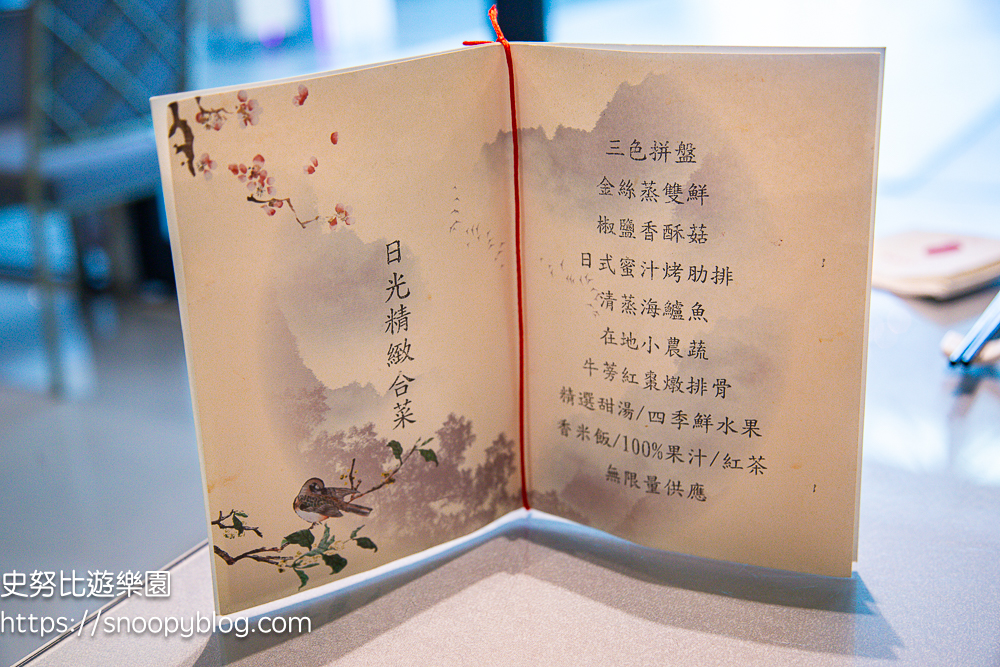 日光精緻合菜
三色拼盤
金絲蒸雙鮮
椒鹽香酥菇
日式蜜汁烤肋排
清蒸海鱸魚
在地小農蔬
牛蒡紅棗燉排骨
精選甜湯/四季鮮水果
香米飯/100%果汁/紅茶
無限量供應
史努比遊樂園
https://snoopyblog.com/